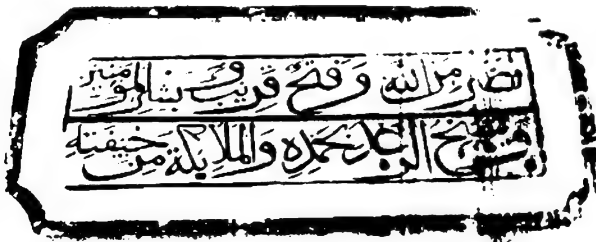 نصر من الله وفتح قريب وبشر المؤمنين
ويسبح الرعد بحمده والملايكة من خيفته